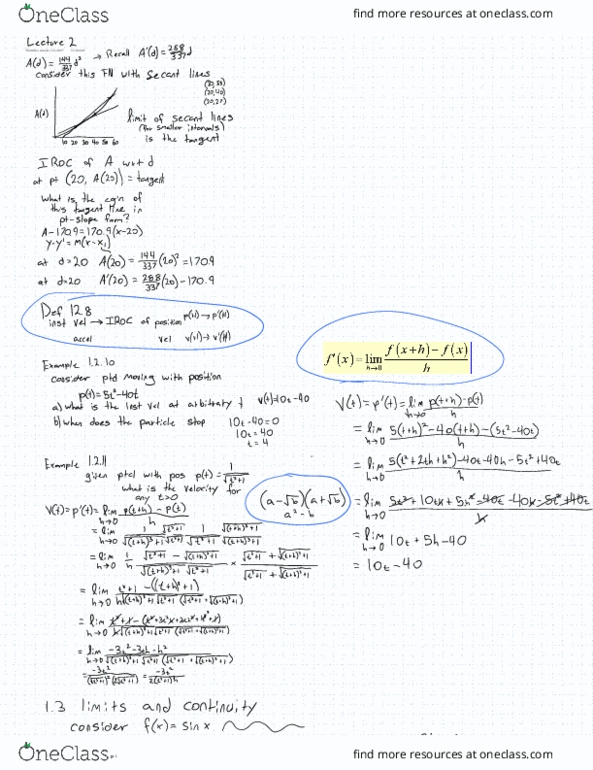 OneClass
find more resources at oneclass.com
Lecture 2
A(d) = 144/337 d² → Recall A'(d) = 288/337 d
consider this FN with secant lines
A(d)
10 20 30 40 50 60
limit of secant lines
(for smaller intervals)
is the tangent
IROC of A wrt d
at pt (20, A(20)) = tangent
what is the eqn of
this tangent line in
pt-slope form?
A-170.9=170.9(x-20)
y-y'=m(x-x₁)
at d=20 A(20) = 144/337 (20)² = 170.9
at d=20 A'(20) = 288/337 (20) - 170.9
Def 1.2.8
inst vel → IROC of position p(t) → p'(t)
accel vel v(t) → v'(t)
f'(x) = lim h→0 f(x+h) - f(x) / h
Example 1.2.10
consider ptcl moving with position
p(t) = 5t²-40t
a) what is the inst vel at arbitrary t v(t)=10t-40
b) when does the particle stop 10t-40=0
10t=40
t=4
V(t) = p'(t) = lim h→0 p(t+h)-p(t) / h
= lim h→0 5(t+h)²-40(t+h)-(5t²-40t) / h
= lim h→0 5(t²+2th+h²)-40t-40h-5t²+40t / h
= lim h→0 5t²+10th+5h²-40t-40h-5t²+40t / h
= lim h→0 10t+5h-40
= 10t-40
Example 1.2.11
given ptcl with pos p(t) = 1/√t³+1
what is the velocity for
any t>0
(a-√b)(a+√b)
a²-b
V(t) = p'(t) = lim h→0 p(t+h) - p(t) / h
= lim h→0 1/h √t³+1 - √(t+h)³+1 / √(t+h)³+1 √t³+1 × √t³+1 + √(t+h)³+1 / √t³+1 + √(t+h)³+1
= lim h→0 t³+1-((t+h)³+1) / h√(t+h)³+1 √t³+1 (√t³+1+√(t+h)³+1)
= lim h→0 -3t²-3th-h² / √(t+h)³+1 √t³+1 (√t³+1+√(t+h)³+1)
1.3 limits and continuity
consider f(x) = sin x
OneClass
find more resources at oneclass.com